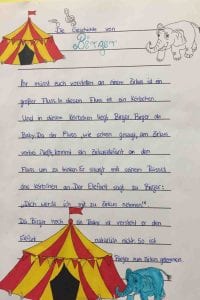 Die Geschichte von
Birger
Ihr müsst euch vorstellen an einem Zirkus ist ein
großer Fluss. In diesem Fluss ist ein Körbchen.
Und in diesem Körbchen liegt Birger. Birger ein
Baby. Da der Fluss, wie schon gesagt, am Zirkus
vorbei fließt, kommt ein Zirkuselefant an den
Fluss um zu trinken. Er saugt mit seinem Rüssel
das Körbchen an. Der Elefant sagt zu Birger:
"Dich werde ich mit zu Zirkus nehmen!".
Da Birger noch ein Baby ist versteht er den
Elefant natürlich nicht. So ist
Birger zum Zirkus gekommen.